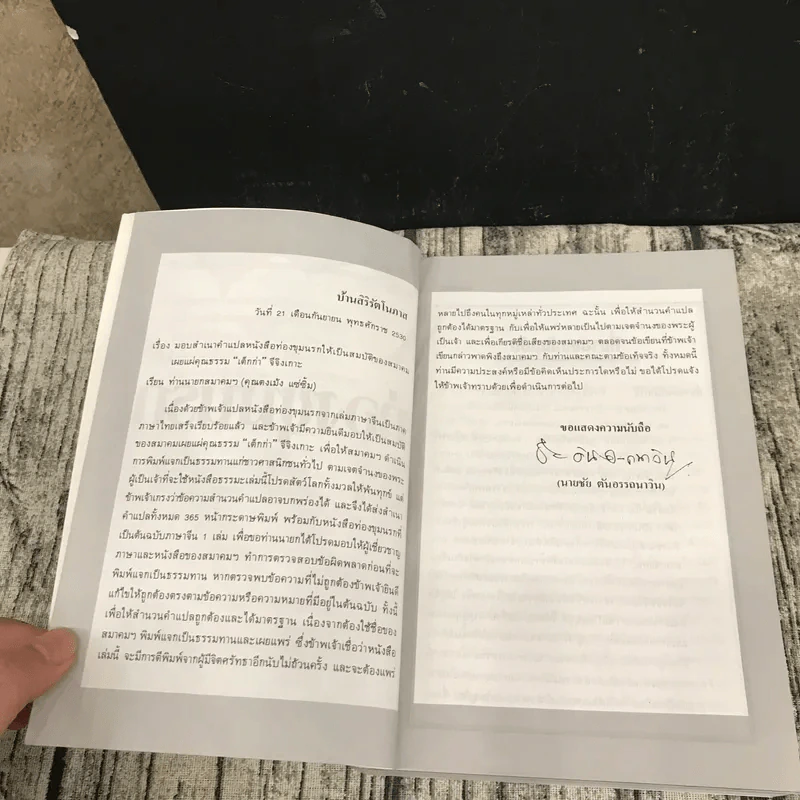 บ้านสิริรัตโนภาส
วันที่ 21 เดือนกันยายน พุทธศักราช 2530
เรื่อง มอบสำเนาคำแปลหนังสือท่องขุมนรกให้เป็นสมบัติของสมาคม
เผยแผ่คุณธรรม "เต็กก่า" จีจินเกาะ
เรียน ท่านนายกสมาคมฯ (คุณตงเม้ง แซ่ซิ้ม)
เนื่องด้วยข้าพเจ้าแปลหนังสือท่องขุมนรกจากเล่มภาษาจีนเป็นภาค
ภาษาไทยเสร็จเรียบร้อยแล้ว และข้าพเจ้ามีความยินดีมอบให้เป็นสมบัติ
ของสมาคมเผยแผ่คุณธรรม "เต็กก่า" จีจินเกาะ เพื่อให้สมาคมฯ ดำเนิน
การพิมพ์เป็นธรรมทานแก่ชาวศาสนิกชนทั่วไป ตามเจตจำนงของพระ
ผู้เป็นเจ้าที่จะใช้หนังสือธรรมะเล่มนี้โปรดสัตว์โลกทั้งมวลให้พ้นทุกข์ แต่
ข้าพเจ้าเกรงว่าข้อความสำนวนคำแปลอาจบกพร่องได้ จึงได้ส่งสำเนา
คำแปลทั้งหมด 365 หน้ากระดาษพิมพ์ พร้อมกับหนังสือท่องขุมนรกที่
เป็นต้นฉบับภาษาจีน 1 เล่ม เพื่อขอท่านนายกได้โปรดมอบให้ผู้เชี่ยวชาญ
ภาษาและหนังสือของสมาคมฯ ทำการตรวจสอบข้อผิดพลาดก่อนที่จะ
พิมพ์แจกเป็นธรรมทาน หากตรวจพบข้อความที่ไม่ถูกต้องข้าพเจ้ายินดี
แก้ไขให้ถูกต้องตรงตามข้อความหรือความหมายที่มีอยู่ในต้นฉบับ ทั้งนี้
เพื่อให้สำนวนคำแปลถูกต้องและได้มาตรฐาน เนื่องจากต้องใช้ชื่อของ
สมาคมฯ พิมพ์แจกเป็นธรรมทานและเผยแพร่ ซึ่งข้าพเจ้าเชื่อว่าหนังสือ
เล่มนี้ จะมีการตีพิมพ์จากผู้มีจิตศรัทธาอีกนับไม่ถ้วนครั้ง และจะต้องแพร่
หลายไปยังคนในทุกหมู่เหล่าทั่วประเทศ ฉะนั้น เพื่อให้สำนวนคำแปล
ถูกต้องได้มาตรฐาน กับเพื่อให้แพร่หลายเป็นไปตามเจตจำนงของพระผู้
เป็นเจ้า และเพื่อเกียรติชื่อเสียงของสมาคมฯ ตลอดจนข้อเขียนที่ข้าพเจ้า
เขียนกล่าวพาดพิงถึงสมาคมฯ กับท่านและคณะตามข้อเท็จจริง ทั้งหมดนี้
ท่านมีความประสงค์หรือมีข้อคิดเห็นประการใดหรือไม่ ขอได้โปรดแจ้ง
ให้ข้าพเจ้าทราบด้วยเพื่อดำเนินการต่อไป
ขอแสดงความนับถือ
(นายชัย ตันอรรถนาวิน)